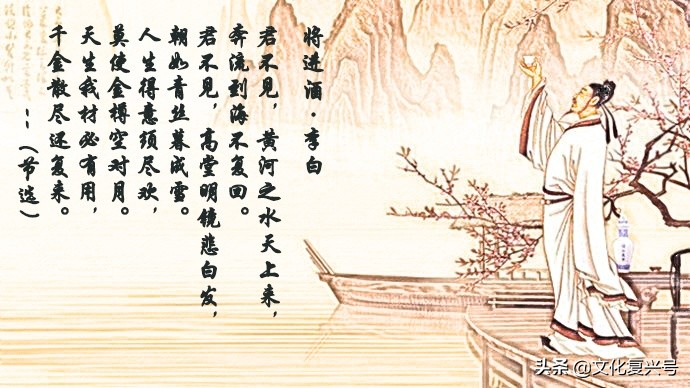 将进酒·李白
君不见，黄河之水天上来，
奔流到海不复回。
君不见，高堂明镜悲白发，
朝如青丝暮成雪。
人生得意须尽欢，
莫使金樽空对月。
天生我材必有用，
千金散尽还复来。
--（节选）
头条 @文化复兴号